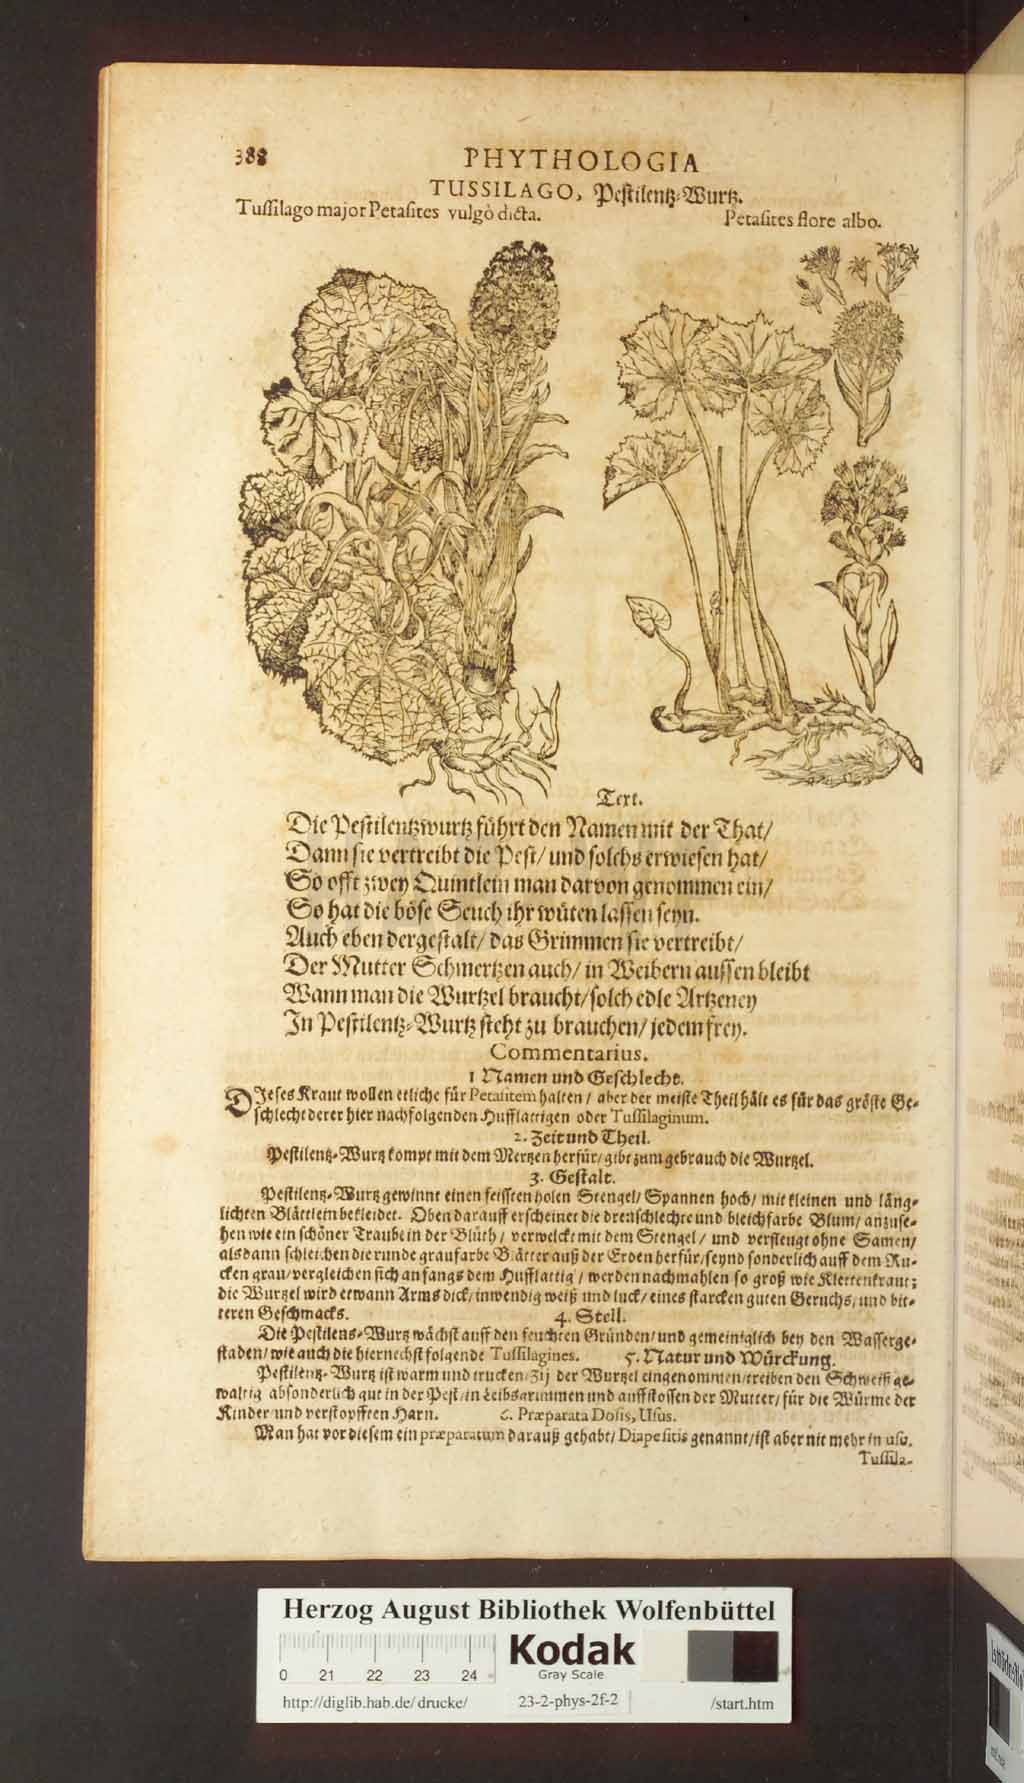 388
PHYTHOLOGIA
TUSSILAGO, Pestilentz-Wurtz.
Tussilago major Petasites vulgò dicta.
Petasites flore albo.
Text.
Die Pestilentzwurtz führt den Namen mit der That/
Dann sie vertreibt die Pest/ und solchs erwiesen hat/
So offt zwey Quintlein man darvon genommen ein/
So hat die böse Seuch ihr wüten lassen seyn.
Auch eben dergestalt/ das Grimmen sie vertreibt/
Der Mutter Schmertzen auch/ in Weibern aussen bleibt
Wann man die Wurtzel braucht/ solch edle Artzeney
In Pestilentz-Wurtz steht zu brauchen/ jedem frey.
Commentarius.
1 Namen und Geschlecht.
DIeses Kraut wollen etliche für Petasitem halten/ aber der meiste Theil hält es für das gröste Ge-
schlecht derer hier nachfolgenden Hufflattigen oder Tussilaginum.
2. Zeit und Theil.
Pestilentz-Wurtz kompt mit dem Mertzen herfür/ gibt zum gebrauch die Wurtzel.
3. Gestalt.
Pestilentz-Wurtz gewinnt einen feissten holen Stengel/ Spannen hoch/ mit kleinen und läng-
lichten Blättlein bekleidet. Oben darauff erscheinet die dreuschlechte und bleichfarbe Blum/ anzuse-
hen wie ein schöner Traube in der Blüth/ verwelckt mit dem Stengel/ und verfleugt ohne Samen/
alsdann schleichen die runde graufarbe Blätter auß der Erden herfür/ seynd sonderlich auff dem Ru-
cken grau/ vergleichen sich anfangs dem Hufflattig/ werden nachmahlen so groß wie Klettenkraut;
die Wurtzel wird etwann Arms dick/ inwendig weiß und luck/ eines starcken guten Geruchs/ und bit-
teren Geschmacks.
4. Stell.
Die Pestilens-Wurtz wächst auff den feuchten Gründen/ und gemeiniglich bey den Wasserge-
staden/ wie auch die hiernechst folgende Tussilagines.
5. Natur und Würckung.
Pestilentz-Wurtz ist warm und trucken/ Zij der Wurtzel eingenommen/ treiben den Schweiß ge-
waltig absonderlich gut in der Pest/ in Leibsgrimmen und auffstossen der Mutter/ für die Würme der
Kinder und verstopfften Harn.
6. Præparata Dosis, Usus.
Man hat vor diesem ein præparatum darauß gehabt/ Diapesitis genannt/ ist aber nit mehr in usu.
Tussila-
Herzog August Bibliothek Wolfenbüttel
Kodak
Gray Scale
0 21 22 23 24
http://diglib.hab.de/drucke/
23-2-phys-2f-2
/start.htm